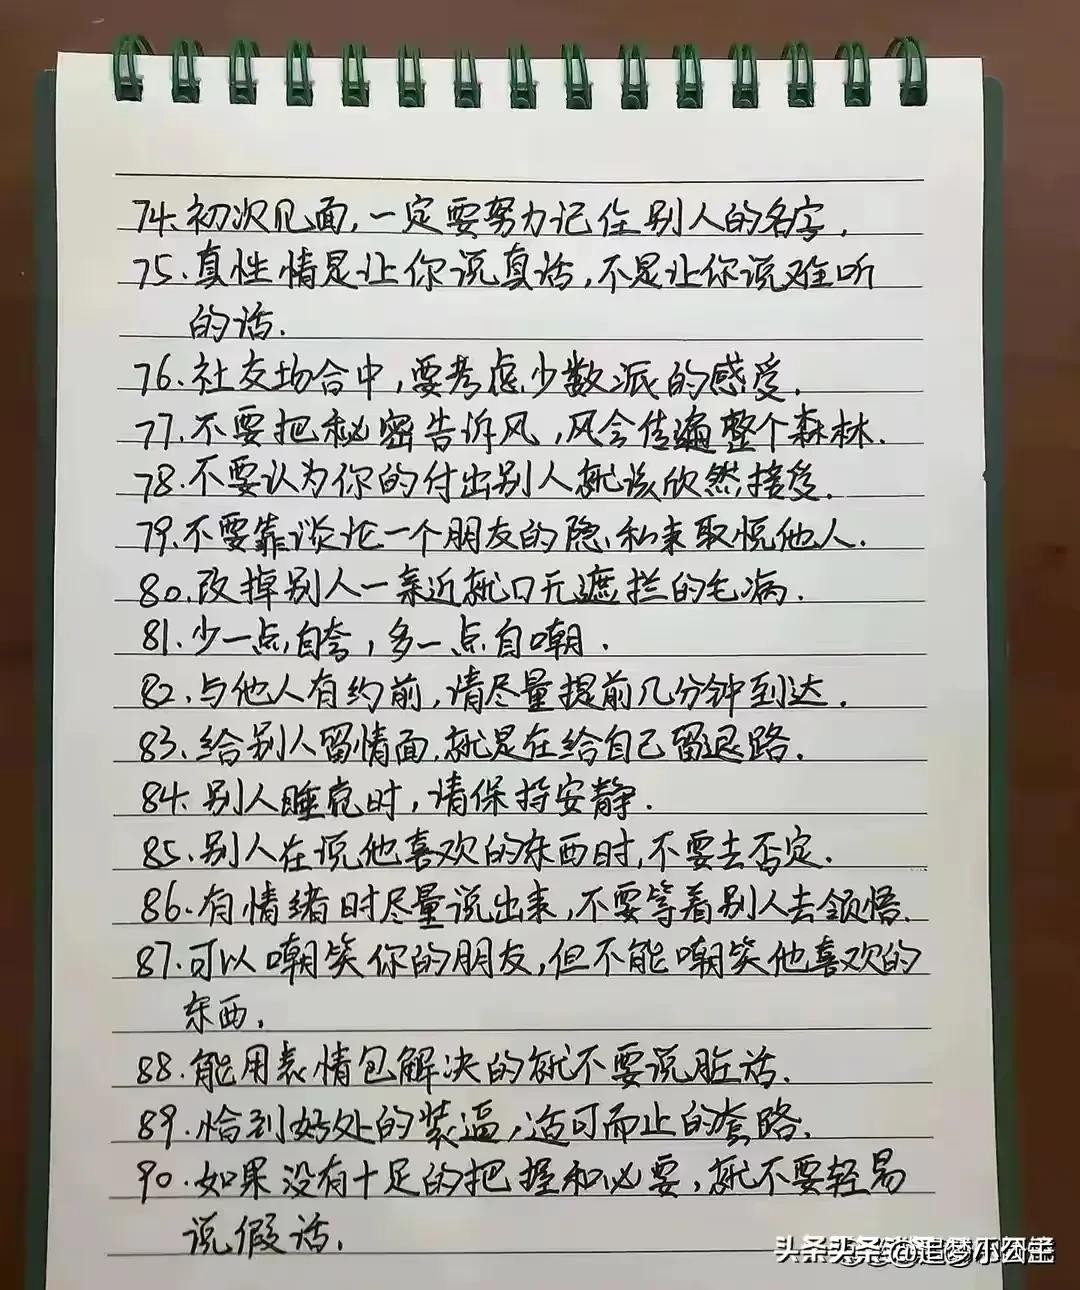 74.初次见面,一定要努力记住别人的名字.
75.真性情是让你说真话,不是让你说难听
的话.
76.社交场合中,要考虑少数派的感受.
77.不要把秘密告诉风,风会传遍整个森林.
78.不要认为你的付出别人就该欣然接受.
79.不要靠谈论一个朋友的隐私来取悦他人.
80.改掉别人一亲近就口无遮拦的毛病.
81.少一点自夸,多一点自嘲.
82.与他人有约前,请尽量提前几分钟到达.
83.给别人留情面,就是在给自己留退路.
84.别人睡觉时,请保持安静.
85.别人在说他喜欢的东西时,不要去否定.
86.有情绪时尽量说出来,不要等着别人去领悟.
87.可以嘲笑你的朋友,但不能嘲笑他喜欢的
东西.
88.能用表情包解决的就不要说脏话.
89.恰到好处的装逼,适可而止的套路.
90.如果没有十足的把握和必要,就不要轻易
说假话.
头条@追梦小公主